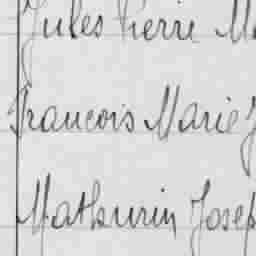 Jules Pierre M
Francois Marie J
Mathurin Josep